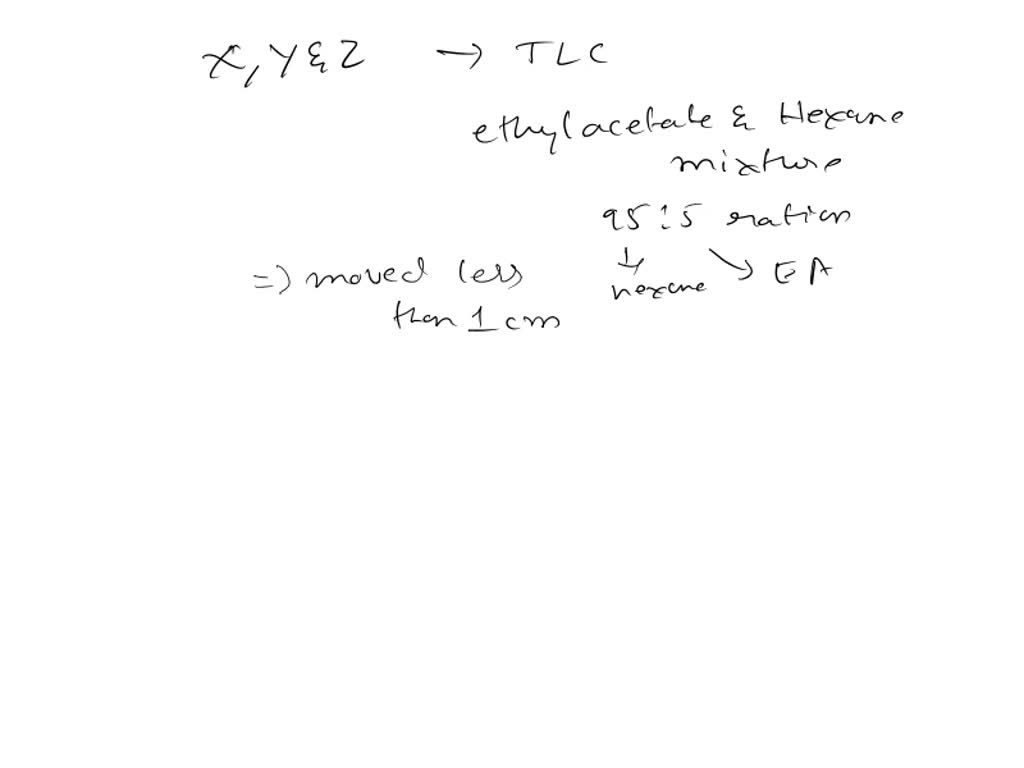 X, Y & Z → TLC
ethylacetate & Hexane
mixture
95:5 ration
=) moved less
than 1 cm
hexane
EA